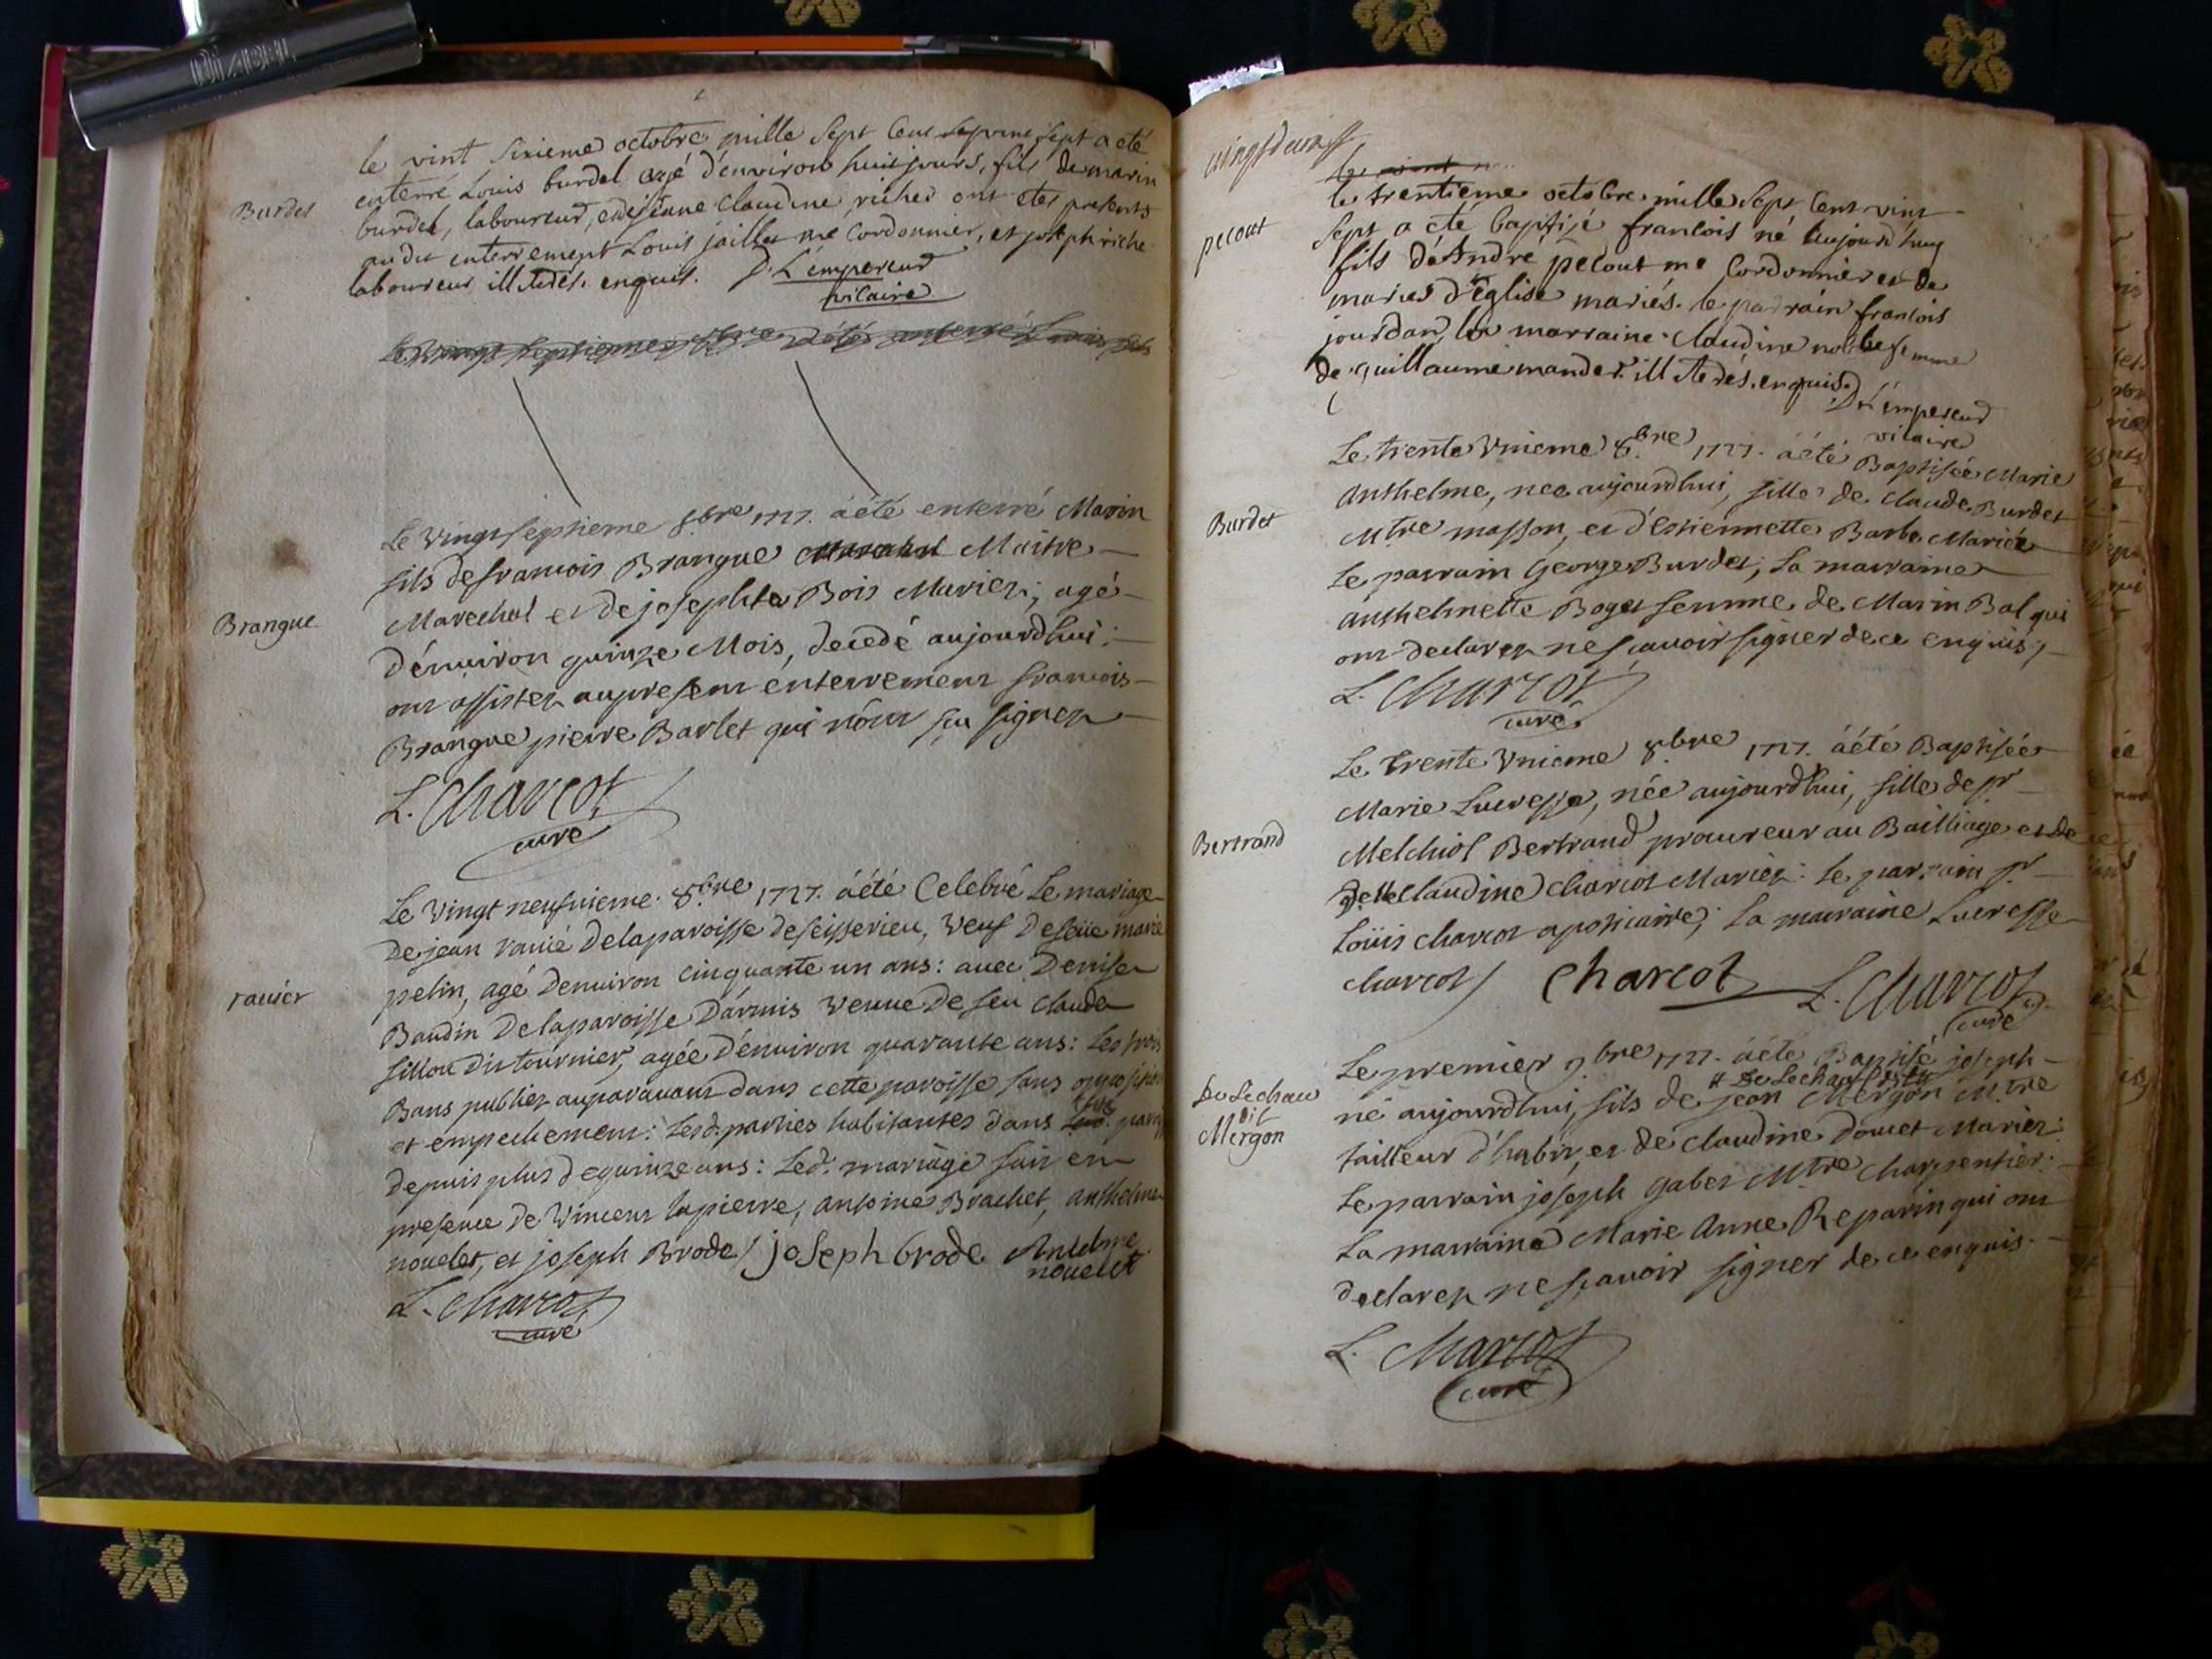 le vint sixieme octobre mille sept cent sept a eté
Burdet
enterré Louis burdel agé d'environ huit jours, fils de marin
burdel, laboureur, claudine riches ont etes presents
au dit enterrement Louis jaillet me Cordonnier, et joseph riche
laboureur illiteres enquis. D. L'empereur
vicaire
Le Vingt septieme
Le Vingt septieme 8.bre 1727. áété enterré Marin
fils de francois Brangue Marechal Maitre
Brangue
Marechal et de josephte Bois Mariez; agé
d'enuiron quinze Mois, decedé aujourdhui;
ont assistez au present enterrement francois
Brangue pierre Barlet qui n'ont sçu signer
L. Charcot
curé
Le Vingt neufuieme 8.bre 1727. áété Celebré Le mariage
De jean rauié De la paroisse de seisserieu, veuf De feüe marie
rauier
pelin, agé Denuiron Cinquante un ans: auec Denise
Baudin De la paroisse D'armis Veuue De feu Claude
fillon Dit tournier, agée D'enuiron quarante ans: Les trois
Bans publiez auparauant dans cette paroisse sans opposition
et empechement: Lesd. parties habitantes dans
depuis plus de quinze ans: Led. mariage fait en
presence de Vincent lapierre, antoine Brachet, anthelme
nouelet, et joseph Brode / joseph brode Antelme
nouelet
L. Charcot
curé
vingt deux
le trentieme octobre mille sept cent vint
pecout
sept a eté baptisé francois né aujourd'huy
fils d'André pecout me Cordonnier et de
maries d'Eglise mariés. le padrain francois
jourdan, la marraine Claudine noble femme
de guillaume mander illiteres enquis
D. L'empereur
vicaire
Le trente Vnieme 8.bre 1727. áété Baptisée Marie
Anthelme, nee aujourdhui, fille de Claude Burdet
Burdet
Mtre masson, et d'Estiennette Barbe Mariés
Le parrain George Burdet, La marraine
anthelmette Boget femme de Marin Bal qui
ont declarez ne sçauoir signer de ce enquis,
L. Charcot
curé
Le trente Vnieme 8.bre 1727. áété Baptisée
Marie Lucresse, née aujourdhui, fille de sr
Bertrand
Melchiol Bertrand procureur au Bailliage et De
Delle Claudine Charcot Mariez: Le parrain sr
Loüis Charcot apoticaire; La marraine Lucresse
charcot / Charcot L. Charcot
curé
Le premier 9.bre 1727. áété Baptisé joseph
De Lechaux
# De Lechaux dit
né aujourdhui, fils de jean Mergon M.tre
dit
Mergon
tailleur d'habit, et de Claudine Doucet Mariez:
Le parrain joseph gabet Mtre Charpentier;
La marraine Marie Anne Reparin qui ont
declarez ne sçauoir signer de ce enquis.
L. Charcot
curé